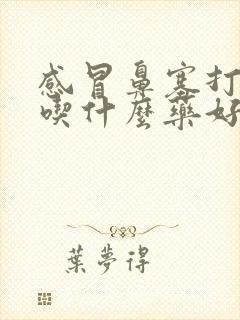 感冒鼻塞打
喫什麼藥好
葉夢得